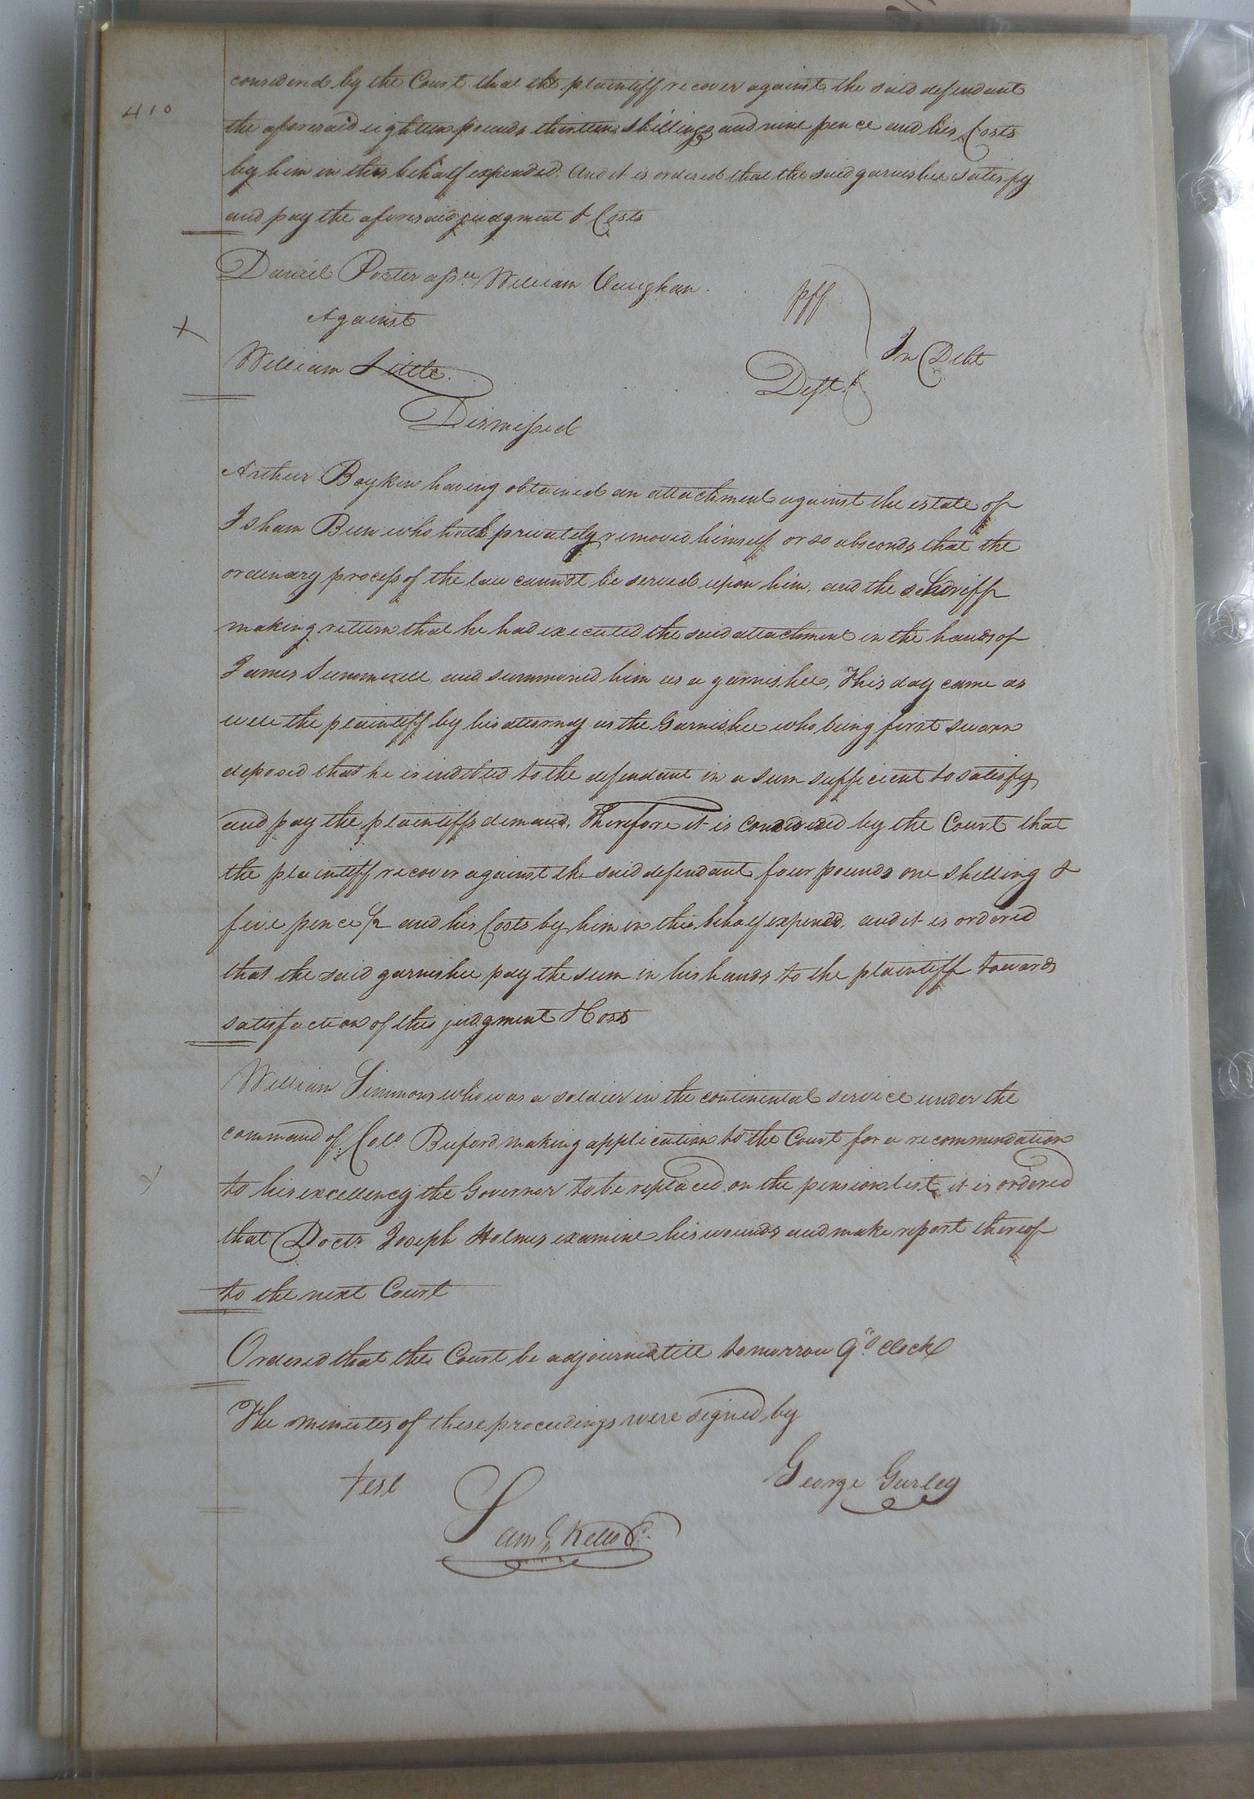 410
considered by the Court that the plaintiff recover against the said defendant
the aforesaid eighteen pounds thirteen shillings and nine pence and his Costs
by him in this behalf expended. And it is ordered that the said garnishee satisfy
and pay the aforesaid judgment & Costs
Daniel Porter assee William Vaughan. plff
Against
In Debt
William Little. Deft.
Dismissed
Arthur Boykin having obtained an attachment against the estate of
Isham Bunn who hath privately removed himself or so absconds that the
ordinary process of the law cannot be served upon him, and the sheriff
making return that he had executed the said attachment in the hands of
James Summerell and summoned him as a garnishee, This day came as
well the plaintiff by his attorney as the Garnishee who being first sworn
deposed that he is indebted to the defendant in a sum sufficient to satisfy
and pay the plaintiffs demand, Therefore it is considered by the Court that
the plaintiff recover against the said defendant four pounds one shilling &
five pence ½ and his Costs by him in this behalf expended, and it is ordered
that the said garnishee pay the sum in his hands to the plaintiff towards
satisfaction of this judgment & Costs
William Simmons who was a soldier in the continental service under the
command of Colo. Buford making application to the Court for a recommendation
to his excellency the Governor to be replaced on the pension list, it is ordered
that Doctr. Joseph Holmes examine his wounds and make report thereof
to the next Court
Ordered that the Court be adjourned till tomorrow 9 o'Clock
The minutes of these proceedings were signed by
George Gurley
Test
Saml. Kello C.